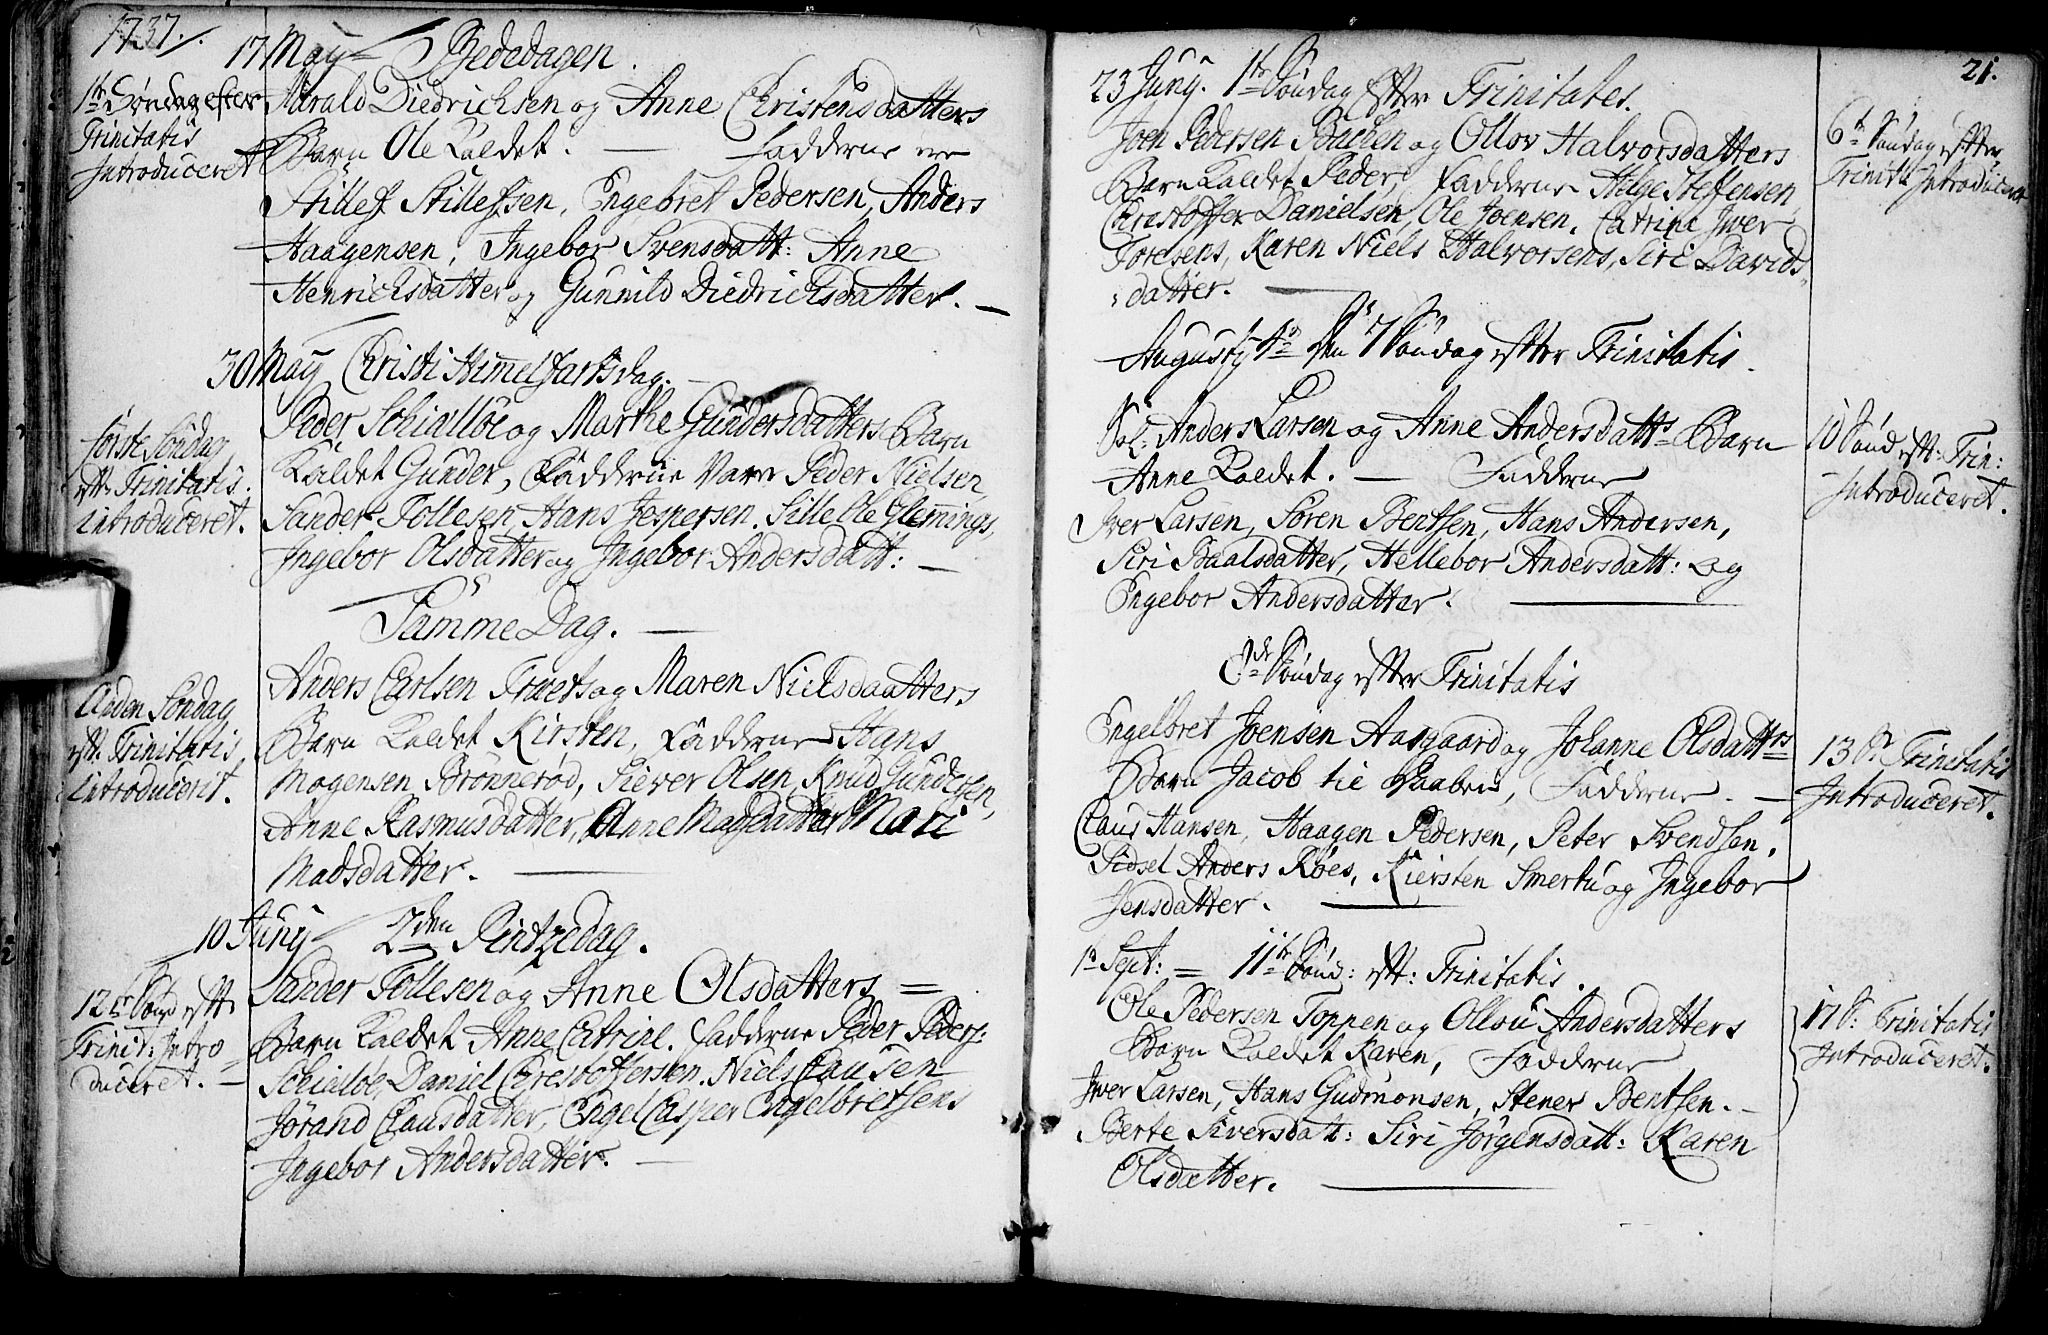 1737.
17 May Bededagen.
1te Søndag efter
Trinitatis
Introduceret
Harald Diedrichsen og Anne Christensdatters
Barn Ole Kaldet. — Fadderne ere
Stillef Stillefsen, Engebret Pedersen, Anders
Haagensen, Ingebor Svensdatt: Anne
Henrichsdatter og Gunnild Diedrichsdatter. —
30 May Christi Himelfartsdag. —
første Söndag
eft. Trinitatis.
introduceret.
Peder Schiallöe og Marthe Gundersdatters Barn
Kaldet Gunder, Fadderne Vare Peder Nielsen,
Sander Tollesen, Hans Jespersen. Sille Ole Flemings,
Ingebor Olsdatter og Ingebor Andersdatt: —
Samme Dag. —
Anden Söndag
eft. Trinitatis
introducerit.
Anders Carlsen Træets og Maren Nielsdaatters
Barn Kaldet Kirsten, Fadderne Hans
Mogensen Brönnerød, Siever Olsen, Knud Gundersen,
Anne Rasmusdatter, Anne Magdatter Mari
Madsdatter. —
10 Juny 2den Pintzedag.
12te Sönd eft.
Trinit: Intro
duceret. —
Sander Tollesen og Anne Olsdatters =
Barn Kaldet Anne Catrine. Fadderne Peder Peders:
Schialöe, Daniel Chrestoffersen. Niels Clausen
Jörand Clausdatter, Engel Casper Engelbretsens
Ingebor Andersdatter. —
21.
23 Juny. 1te Söndag Efter Trinitates.
6te Söndag efter
Trinit: Introduceret
Joen Pedersen Bachen og Ollov Halvorsdatters
Barn Kaldet Peder, Fadderne Helge Steffensen,
Christoffer Danielsen, Ole Joensen. Catrine Iwer
Toresens, Karen Niels Halvorsens, Siri Davids
:datter. —
Augusty 4de den 7 Söndag efter Trinitatis.
10 Sönd eft: Trin:
Introduceret.
Sl: Anders Larsen og Anne Andersdatts Barn
Anne Kaldet. — Fadderne
Iver Larsen, Sören Bentsen, Hans Andersen,
Siri Paalsdatter, Hellebor Andersdatt: og
Engebor Andersdatter. —
8de Söndag efter Trinitatis
13 S. Trinitatis
Introduceret.
Engelbret Joensen Aasgaard og Johanne Olsdattrs
Barn Jacob tie Daaben, Fadderne. —
Claus Hansen, Haagen Pedersen, Peter Svendsen,
Sidsel Anders Röes, Kiersten Smertu og Ingebor
Jensdatter. —
1te Sept: = 11te Sönd: eft: Trinitatis.
17 S: Trinitatis
Introduceret.
Ole Pedersen Toppen og Ollou Andersdatters
Barn Kaldet Karen, Fadderne
Iwer Larsen, Hans Gudmonsen, Stener Bentsen. —
Berte Siversdatt: Siri Jörgensdatt: Karen
Olsdatter. —